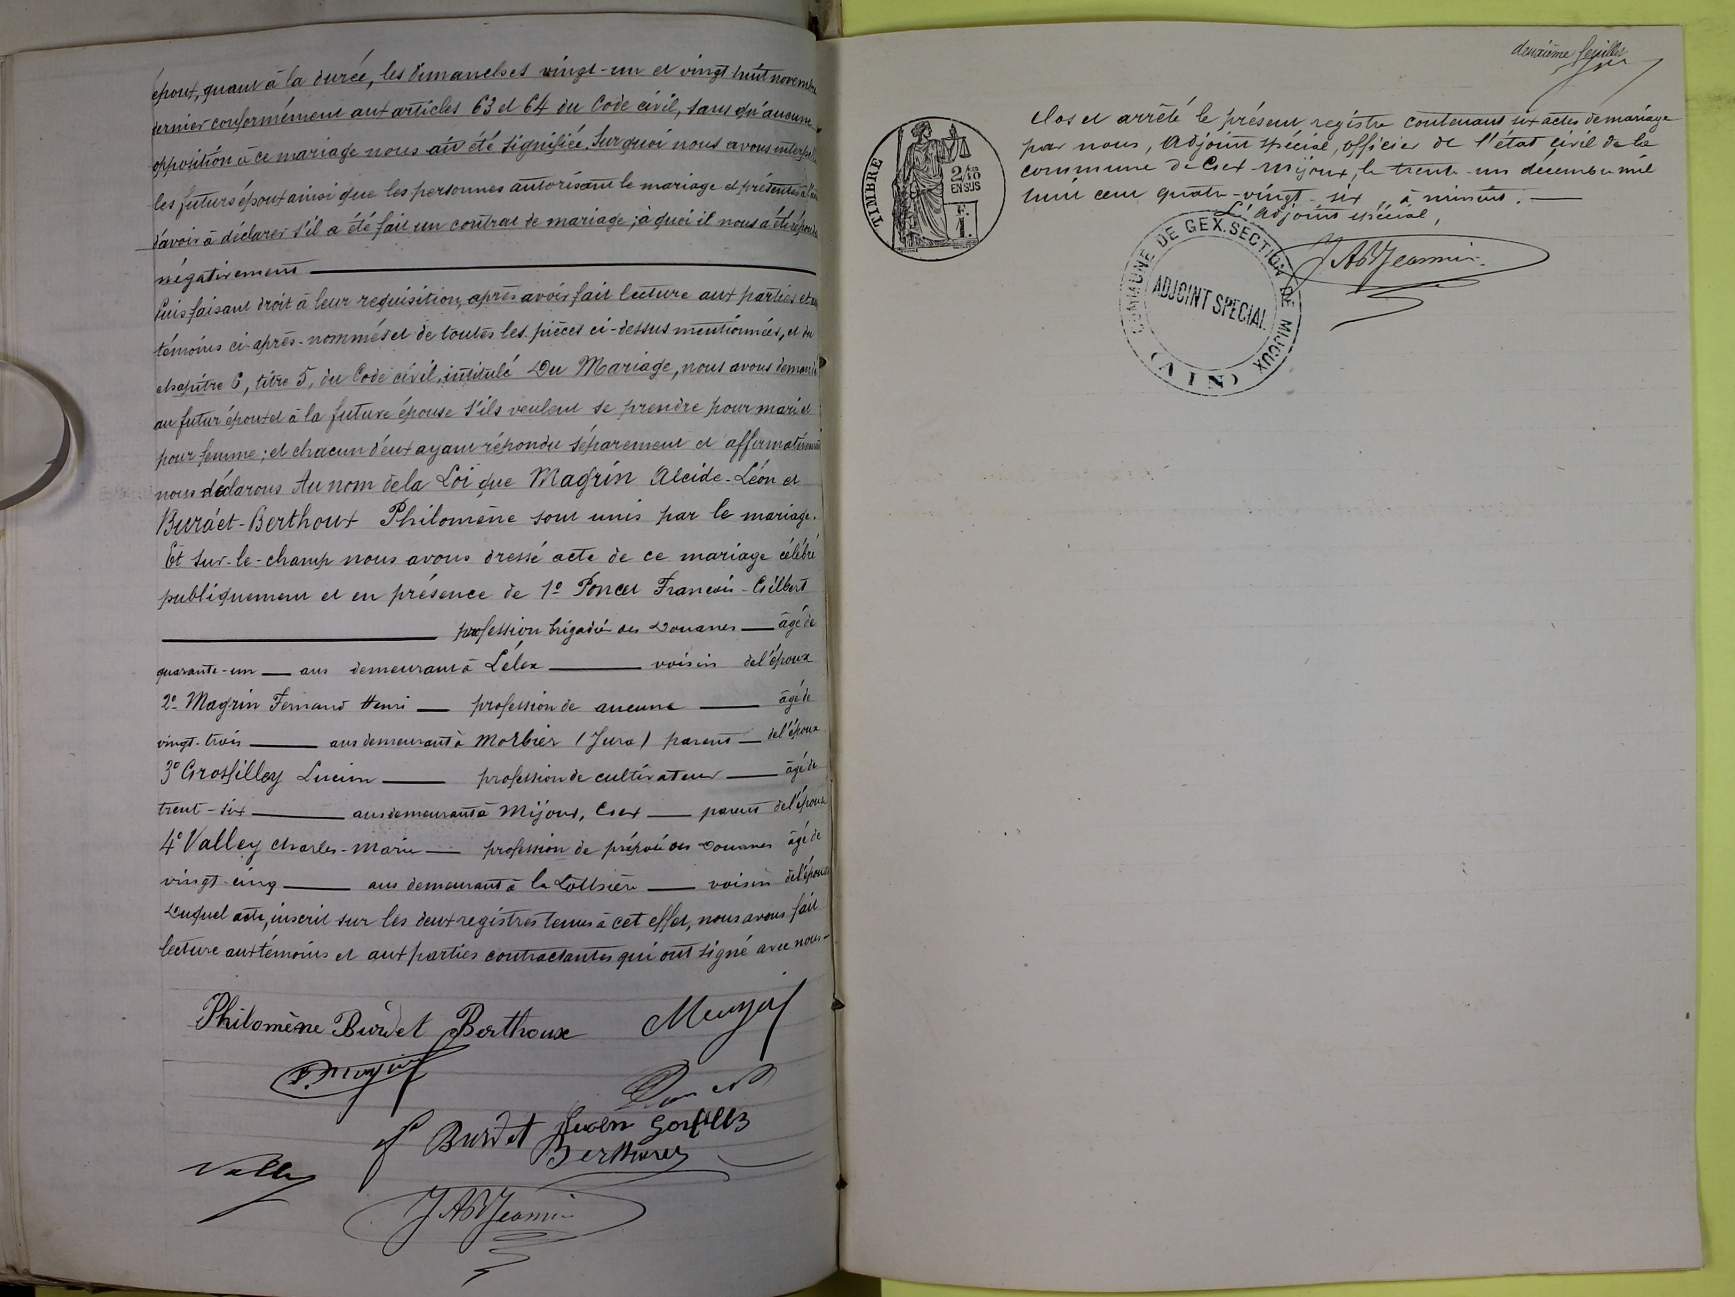 époux, quant à la durée, les Dimanches vingt-un et vingt huit novembre
dernier conformément aux articles 63 et 64 du Code civil, sans qu'aucune
opposition à ce mariage nous ait été signifiée. Sur quoi nous avons interpellé
les futurs époux ainsi que les personnes autorisant le mariage et présentes à l'
d'avoir à déclarer s'il a été fait un contrat de mariage ; à quoi il nous a été répondu
négativement
Puis faisant droit à leur requisition, après avoir fait lecture aux parties et aux
témoins ci-après-nommés et de toutes les pièces ci-dessus mentionnées, et du
chapitre 6, titre 5, du Code civil, intitulé Du Mariage, nous avons demandé
au futur époux et à la future épouse s'ils veulent se prendre pour mari et
pour femme ; et chacun d'eux ayant répondu séparement et affirmativement
nous déclarons Au nom de la Loi que Magrin Alcide-Léon et
Burdet-Berthoux Philomène sont unis par le mariage.
Et sur-le-champ nous avons dressé acte de ce mariage célébré
publiquement et en présence de 1° Poncet Francois-Gilbert
profession brigadier des Douanes âgé de
quarante-un ans demeurant à Lélex voisin de l'époux
2° Magrin Fernand Henri profession de aucune âgé de
vingt-trois ans demeurant à Morbier (Jura) parent de l'époux
3° Grosfilley Lucien profession de cultivateur âgé de
trent-six ans demeurant à Mijoux, Gex parent de l'épouse
4° Valley Charles-Marie profession de préposé des Douanes âgé de
vingt-cinq ans demeurant à la voisin de l'épouse
Duquel acte, inscrit sur les deux registres tenus à cet effet, nous avons fait
lecture aux témoins et aux parties contractantes qui ont signé avec nous
Philomène Burdet Berthoux
Burdet Lucien
Valley
JAB Jeannin
deuxième feuillet
TIMBRE
2/10
EN SUS
F.
1.
Clos et arrêté le présent registre contenant six actes de mariage
par nous, Adjoint spécial, officier de l'état civil de la
commune de Gex Mijoux, le trente-un décembre mil
huit cent quatre-vingt-six, à minuit.
L'Adjoint spécial,
JAB Jeannin
COMMUNE DE GEX. SECTION DE MIJOUX
ADJOINT SPECIAL
(AIN)